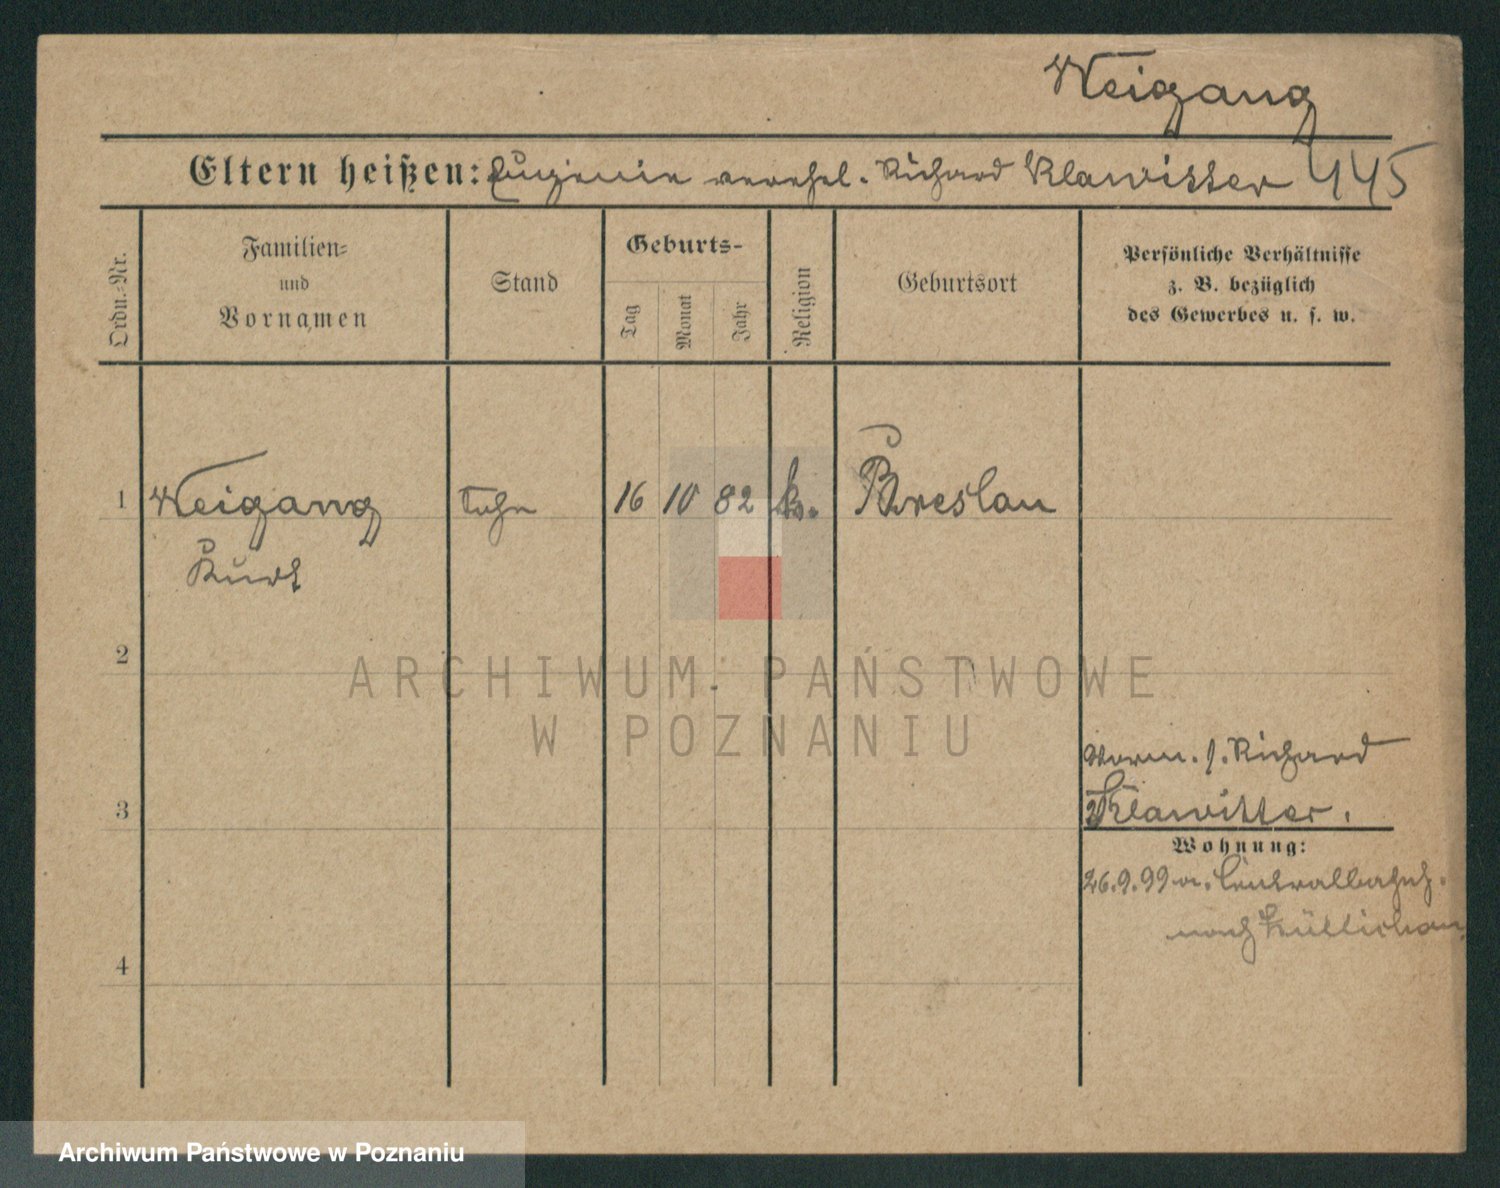 Weigang
Eltern heißen: Eugenie verehel. Richard Klawitter 445
Ordn.-Nr.
Familien-
und
Vornamen
Stand
Geburts-
Tag
Monat
Jahr
Religion
Geburtsort
Persönliche Verhältnisse
z. B. bezüglich
des Gewerbes u. s. w.
1 Weigang 16 10 82 k. Breslau
Kurt
2
ARCHIWUM PAŃSTWOWE
W POZNANIU
Vorm. s. Richard
3 Klawitter.
Wohnung:
26.9.99 a. Centralbahnh.
nach Züllichau
4
Archiwum Państwowe w Poznaniu